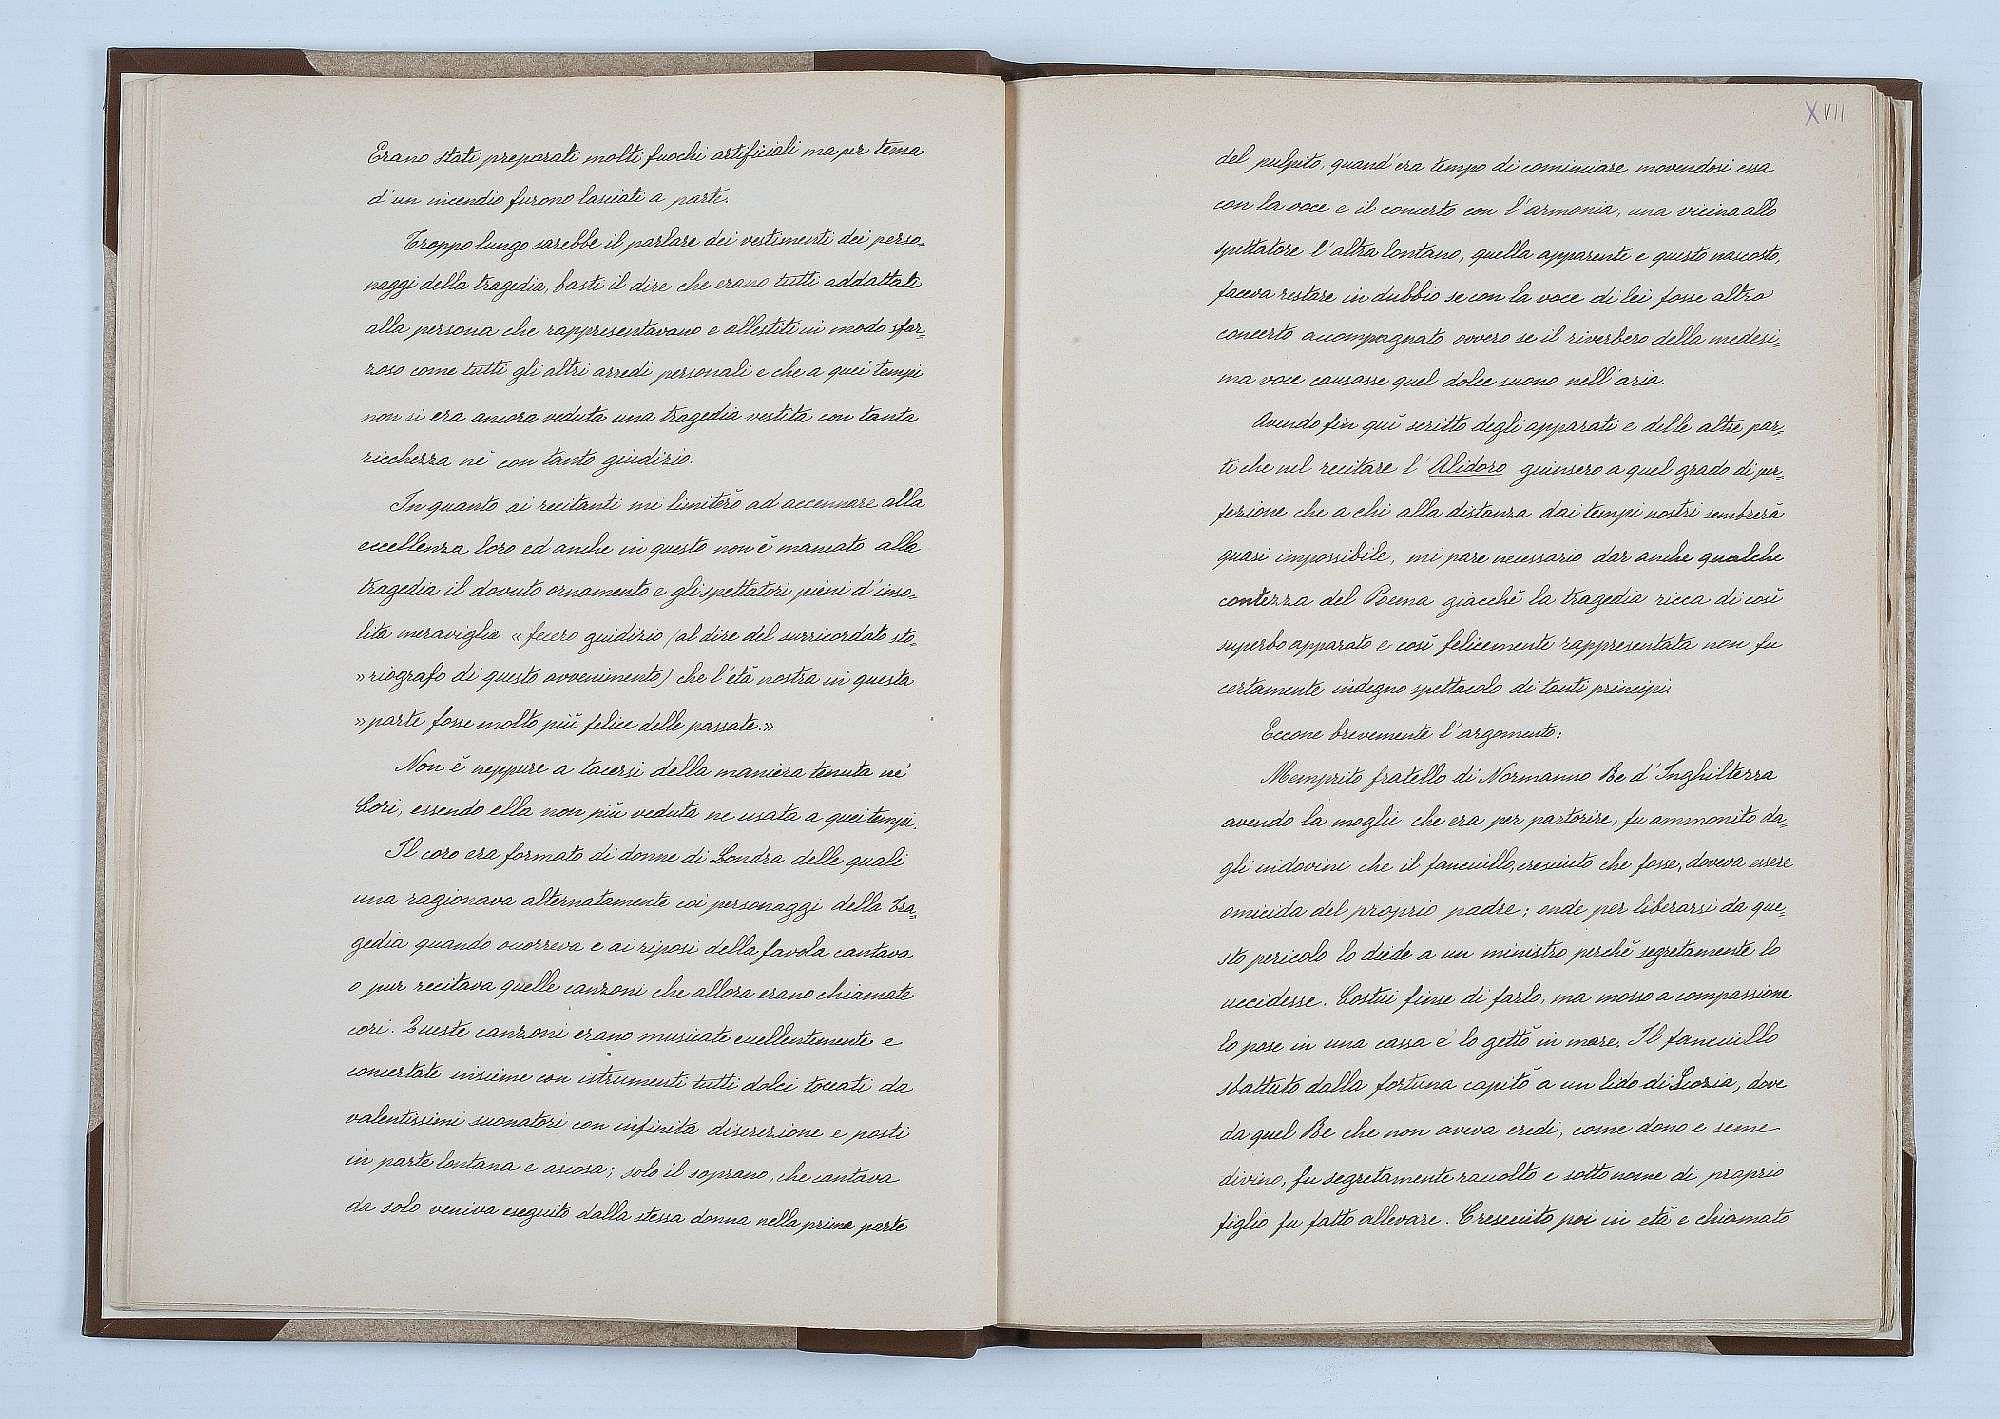 Erano stati preparati molti fuochi artificiali ma per tema
d'un incendio furono lasciati a parte.
Troppo lungo sarebbe il parlare dei vestimenti dei perso-
naggi della tragedia, basti il dire che erano tutti addattati
alla persona che rappresentavano e allestiti in modo sfar-
zoso come tutti gli altri arredi personali e che a quei tempi
non si era ancora veduta una tragedia vestita con tanta
ricchezza nè con tanto giudizio.
In quanto ai recitanti mi limiterò ad accennare alla
eccellenza loro ed anche in questo non è mancato alla
tragedia il dovuto ornamento e gli spettatori pieni d'inso-
lita meraviglia «fecero guidizio (al dire del surricordato sto-
»riografo di questo avvenimento) che l'età nostra in questa
»parte fosse molto più felice delle passate.»
Non è neppure a tacersi della maniera tenuta ne'
Cori, essendo ella non più veduta ne usata a quei tempi.
Il coro era formato di donne di Londra delle quali
una ragionava alternatamente coi personaggi della Tra-
gedia quando occorreva e ai riposi della favola cantava
o pur recitava quelle canzoni che allora erano chiamate
cori. Queste canzoni erano musicate excellentemente e
concertate insieme con istrumenti tutti dolci toccati da
valentissimi suonatori con infinita discrezione e posti
in parte lontana e ascosa; solo il soprano, che cantava
da solo veniva eseguito dalla stessa donna nella prima parte
XVII
del pulpito, quand'era tempo di cominciare movendosi essa
con la voce e il concerto con l'armonia, una vicina allo
spettatore l'altra lontano, quella apparente e questo nascosto,
faceva restare in dubbio se con la voce di lei fosse altro
concerto accompagnato ovvero se il riverbero della medesi-
ma voce causasse quel dolce suono nell'aria.
Avendo fin quì scritto degli apparati e delle altre par-
ti che nel recitare l'Alidoro guinsero a quel grado di per-
fezione che a chi alla distanza dai tempi nostri sembrerà
quasi impossibile, mi pare necessario dar anche qualche
contezza del Poema giacchè la tragedia ricca di così
superbo apparato e così felicemente rappresentata non fu
certamente indegno spettacolo di tanti principi.
Eccone brevemente l'argomento:
Memprito fratello di Normanno Re d'Inghilterra
avendo la moglie che era per partorire, fu ammonito da-
gli indovini che il fanciullo, cresciuto che fosse, doveva essere
omicida del proprio padre; onde per liberarsi da que-
sto pericolo lo diede a un ministro perchè segretamente lo
uccidesse. Costui finse di farlo, ma mosso a compassione
lo pose in una cassa e lo gettò in mare. Il fanciullo
sbattuto dalla fortuna capitò a un lido di Scozia, dove
da quel Re che non aveva eredi, come dono e seme
divino, fu segretamente raccolto e sotto nome di proprio
figlio fu fatto allevare. Cresciuto poi in età e chiamato